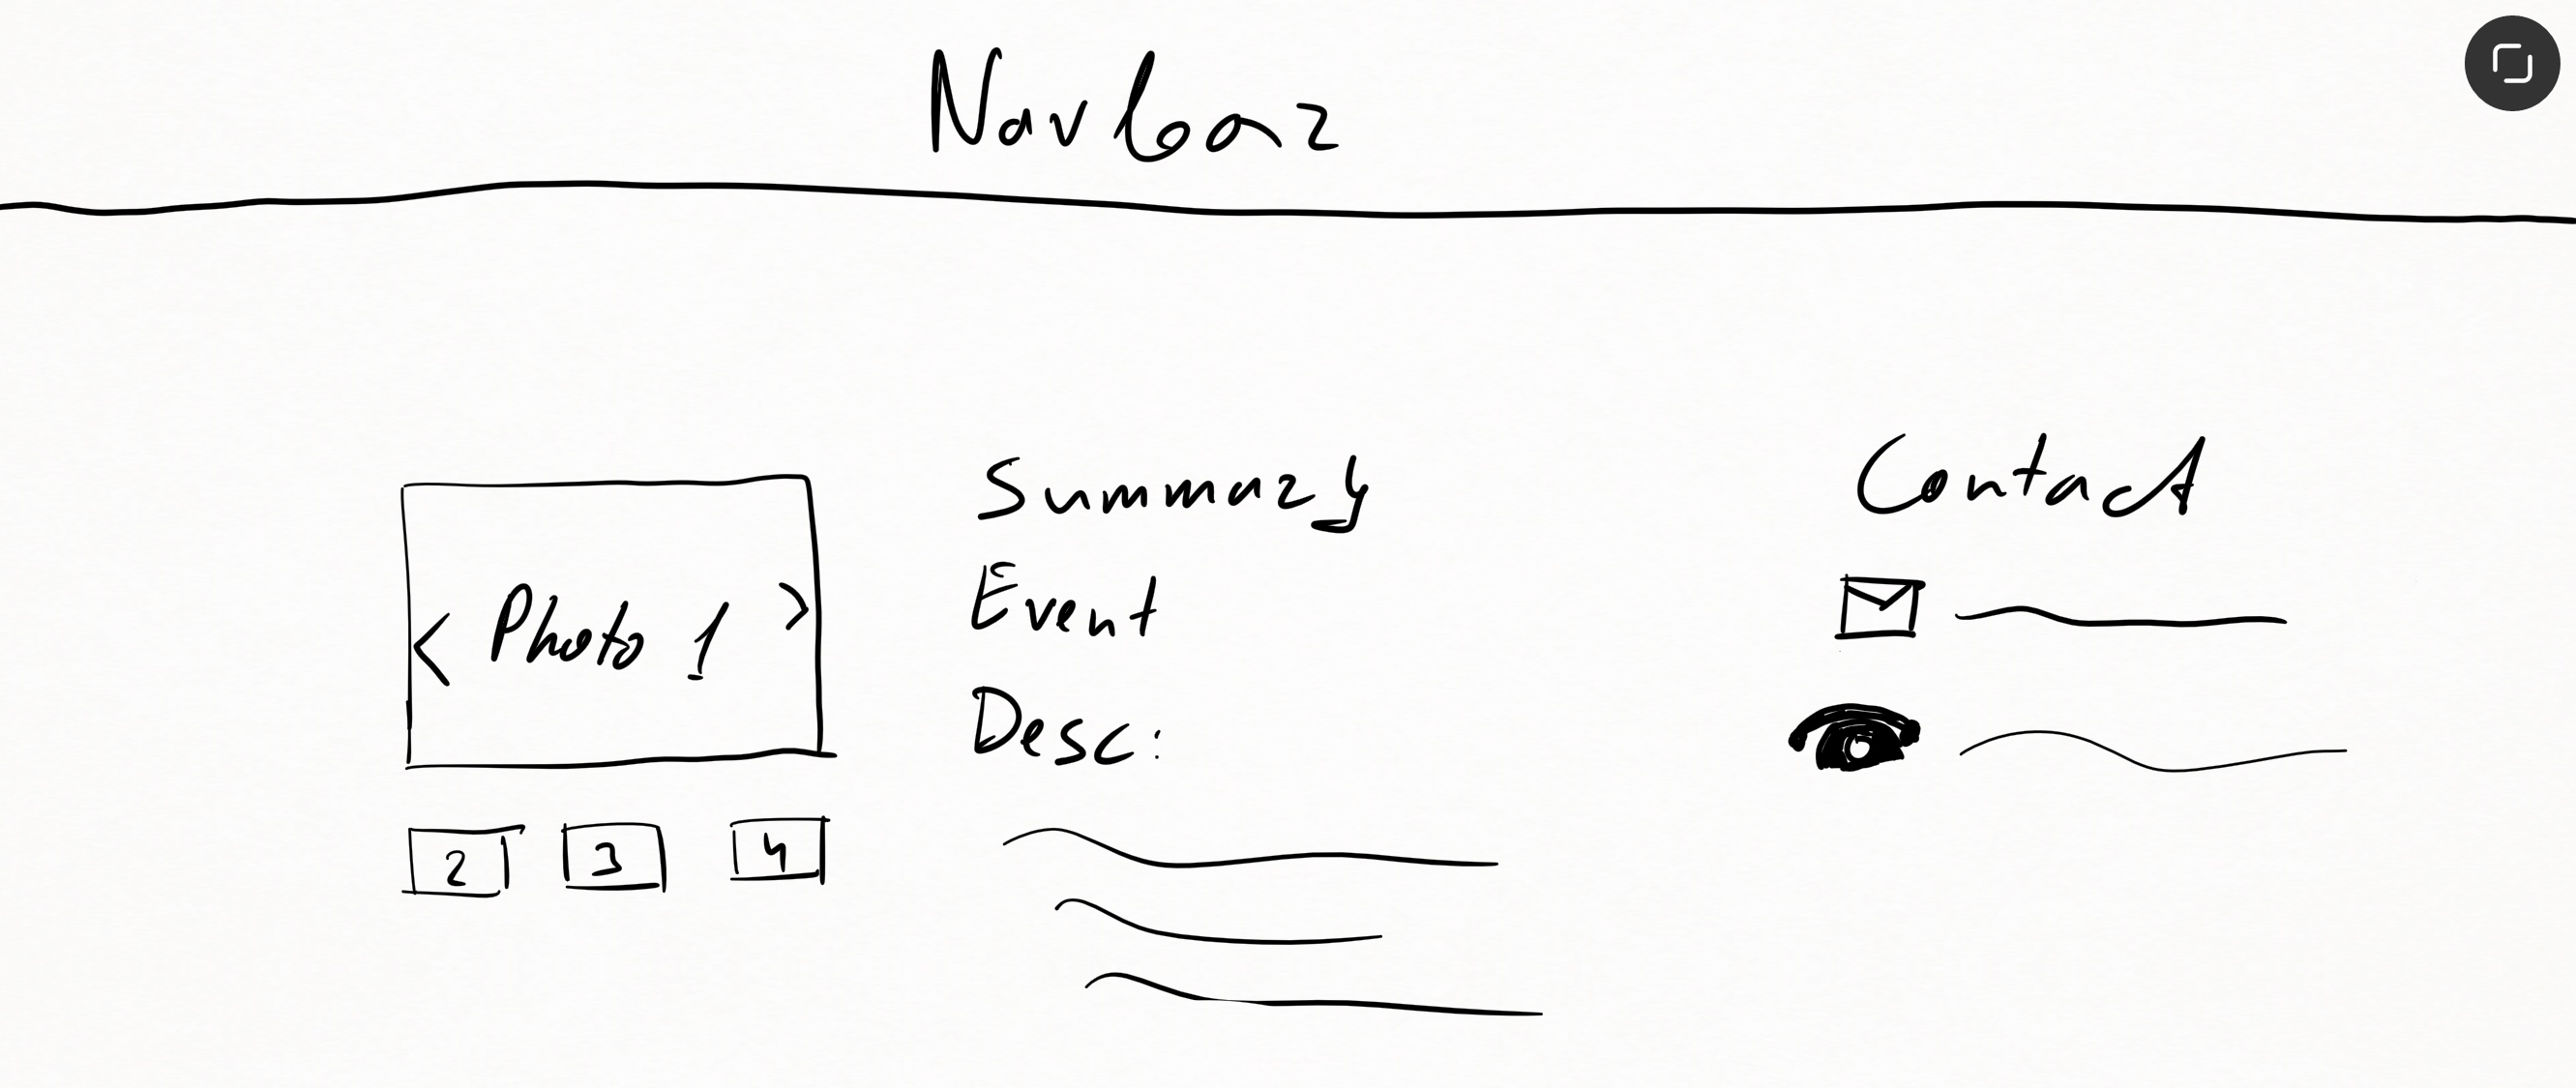 Navbar
< Photo 1 >
2 3 4
Summary
Event
Desc:
Contact